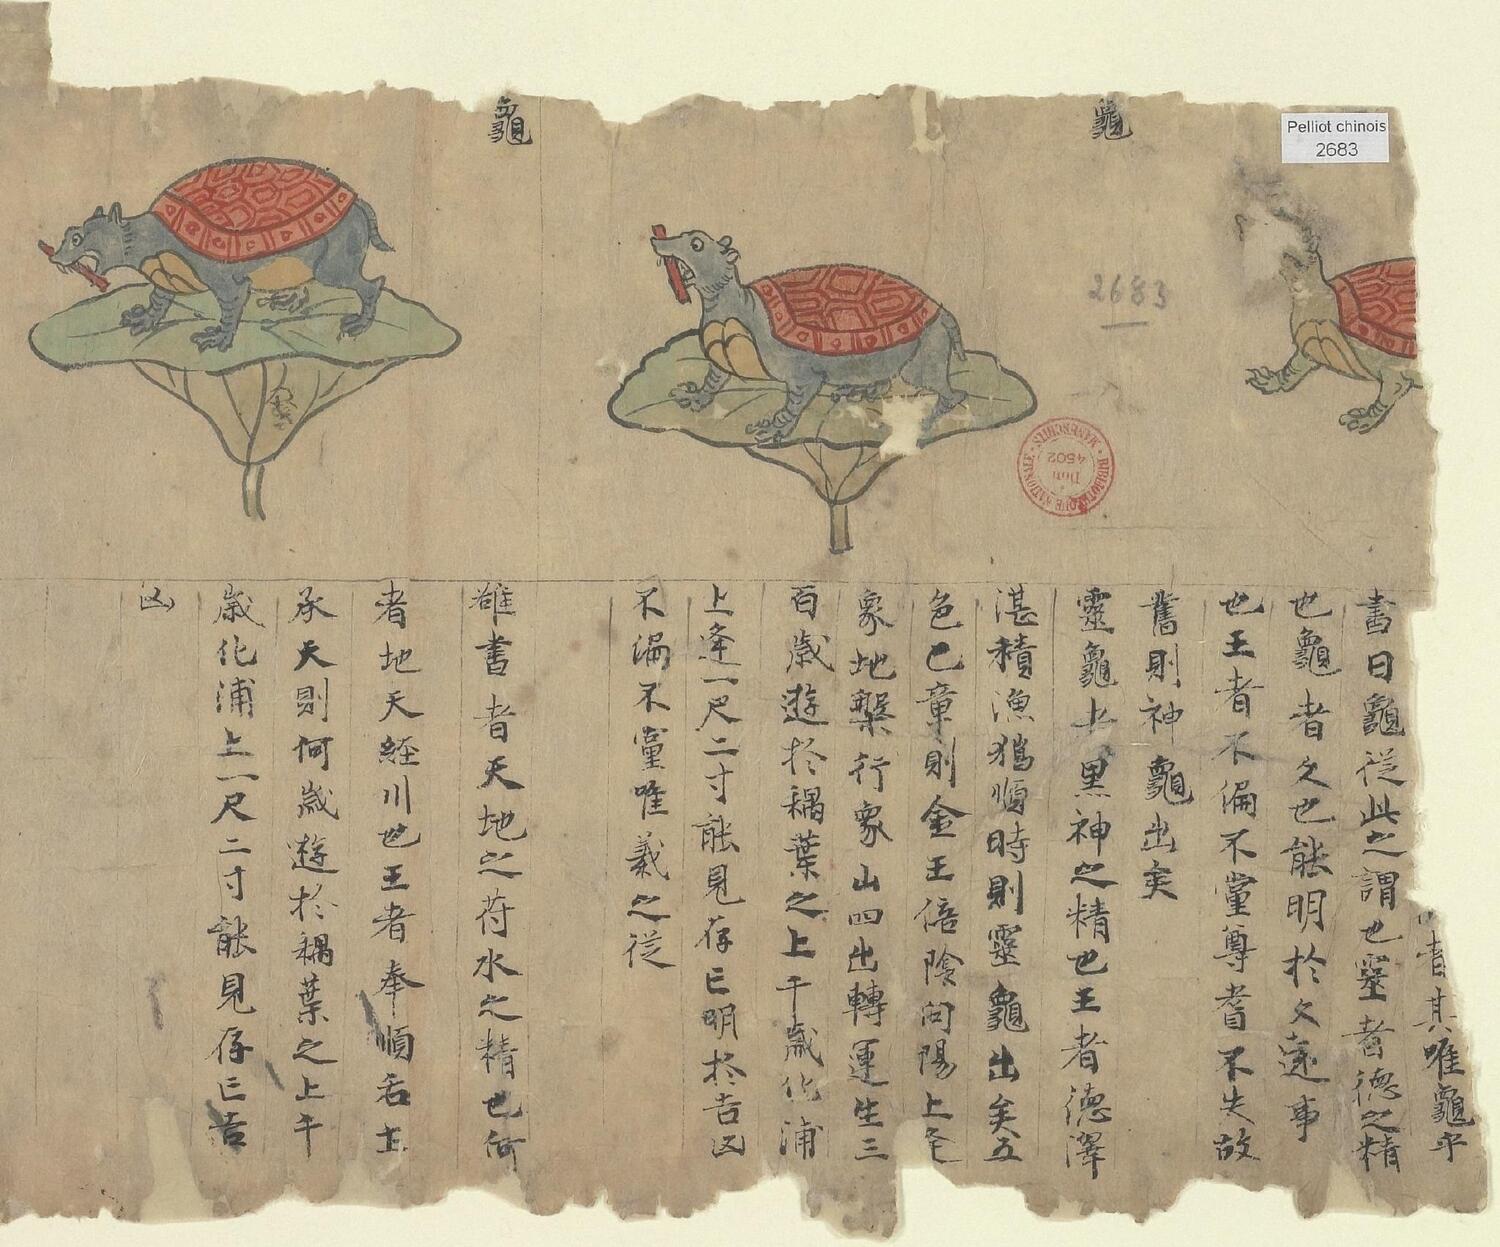 龜
龜
Pelliot chinois
2683
2683
BIBLIOTHÈQUE NATIONALE · MANUSCRITS ·
Don
4502
者其唯龜乎
書曰龜從此之謂也靈者德之精
也龜者久也能明於久遠事
也王者不偏不黨尊耆不失故
舊則神龜出矣
靈龜者黑神之精也王者德澤
湛積漁猟順時則靈龜出矣五
色已章則金玉倍陰向陽上
象地槃行象山四出轉運生三
百歲遊於耦葉之上千歲化浦
上逢一尺二寸能見存亡明於吉凶
不漏不黨唯義之從
雒書者天地之苻水之精也何
者地天經川也王者奉順右主
承天則何歲遊於耦葉之上千
歲化浦上一尺二寸能見存亡吉
凶